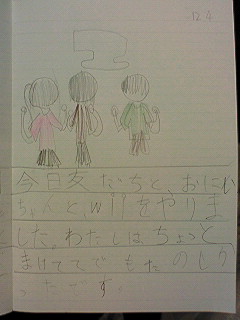 12.4
今日友だちと、おにい
ちゃんとwiiをやりま
した。わたしはちょっと
まけててでもたのしか
ったです。